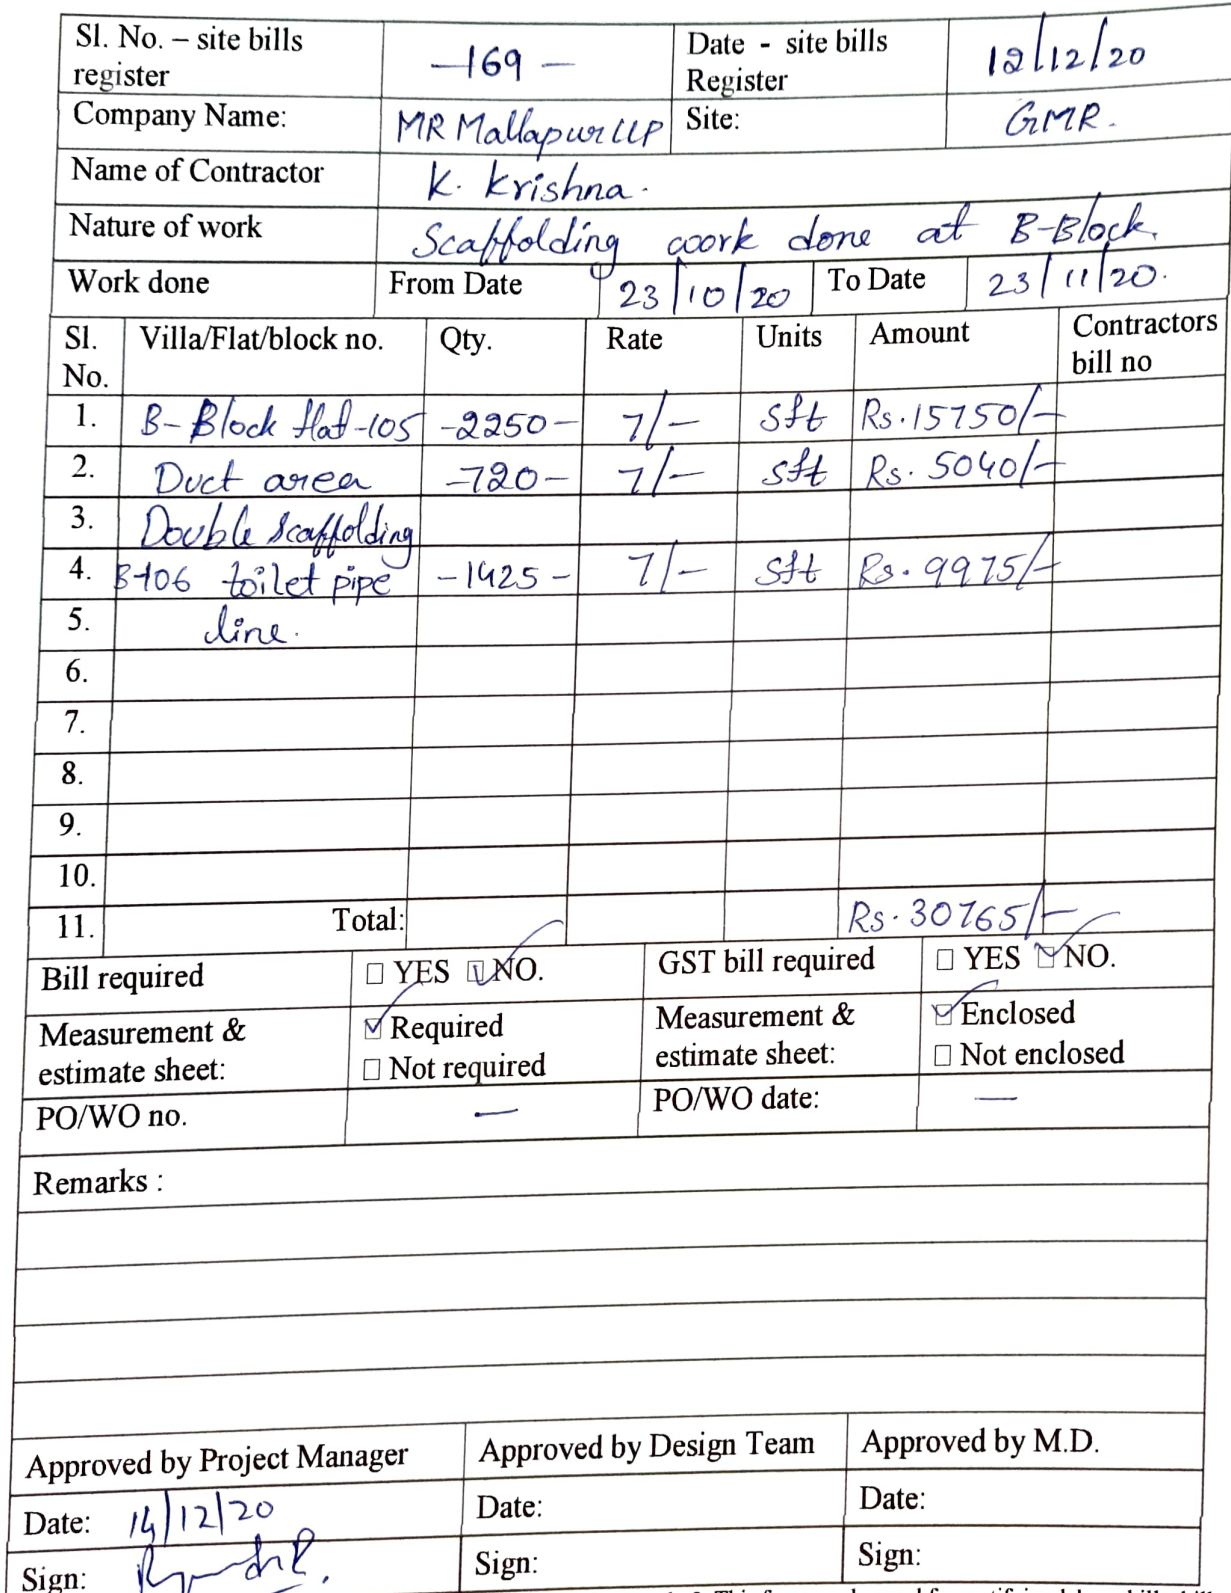 Sl. No. – site bills register —169— Date - site bills Register 12/12/20
Company Name: MR Mallapur LLP Site: GMR.
Name of Contractor K. Krishna.
Nature of work Scaffolding work done at B-Block.
Work done From Date 23/10/20 To Date 23/11/20.
Sl. No. Villa/Flat/block no. Qty. Rate Units Amount Contractors bill no
1. B-Block flat-105 -2250- 7/- sft Rs.15750/-
2. Duct area -720- 7/- sft Rs. 5040/-
3. Double Scaffolding
4. B-106 toilet pipe -1425- 7/- sft Rs. 9975/-
5. line.
6.
7.
8.
9.
10.
11. Total: Rs. 30765/-
Bill required ☐ YES ☑ NO. GST bill required ☐ YES ☑ NO.
Measurement & estimate sheet: ☑ Required ☐ Not required Measurement & estimate sheet: ☑ Enclosed ☐ Not enclosed
PO/WO no. — PO/WO date: —
Remarks :
Approved by Project Manager Approved by Design Team Approved by M.D.
Date: 14/12/20 Date: Date:
Sign: Sign: Sign: